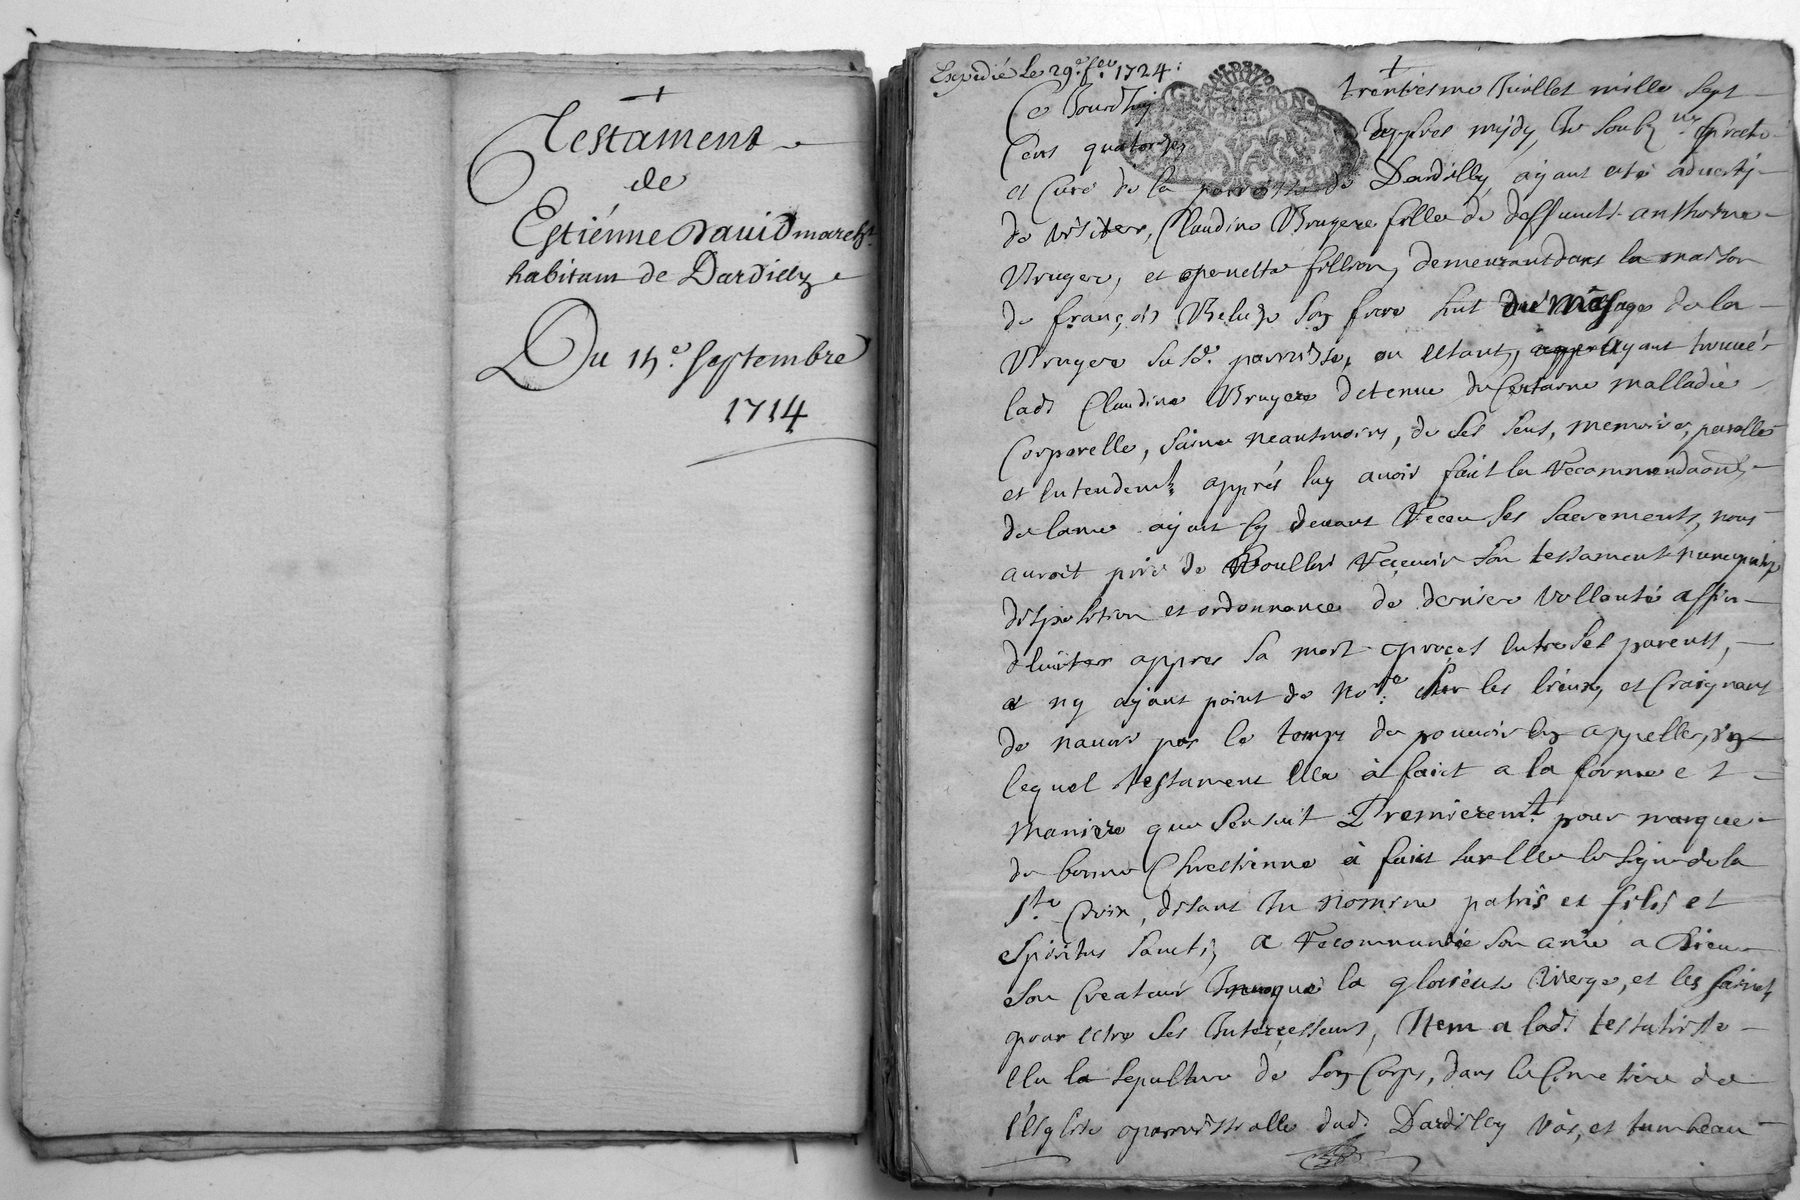 Testament
de
Estiénne Dauid march.
habitant de Dardilly
Du 14.e septembre
1714
Expedié Le 29.e f.er 1724
GENERATION
Ce Jourdhuy trentiesme Juillet mille sept
Cens quatorzes appres mydy, Je soubz.né pretre
et Curé de la parroisse de Dardilly, ayant esté aduerty
de visiter, Claudine Bruyere fille de deffunct anthoine
Bruyere, et penette fillion, demeurant dans la maison
de françois son frere du Village de la
Bruyere susd. parroisse, ou estant, ayant trouué
lad. Claudine Bruyere detenue de Certaine malladie
Corporelle, saine neantmoins, de ses sens, memoire, parolle
et entendemt. apprés luy auoir fait la recommendaon
de lame ayant cy deuant receu ses sacrements, nous
auroit prié de voulloir reçeuoir son testament nuncupatif
disposition et ordonnance de derniere vollonté affin
deuiter appres sa mort proçes entre ses parents,
et ny ayant point de nore. sur les lieux, et Craignant
de nauoir pas le temps de pouuoir en appeller, un
lequel testament elle à faict a la forme et
maniere que sensuit Premieremt. pour marque
de bonne Chrestienne à faict sur elle le signe de la
Ste. Croix, disant In nomine patris et filis et
spiritus sancti, a recommandée son ame a Dieu
son Createur Inuoqué la glorieuse vierge, et les saincts
pour estre ses Intercesseurs, Item a lad. testatrisse
elu la sepulture de son Corps, dans le Cimetiere de
l'église parroissialle dud. Dardilly vas, et tumbeau